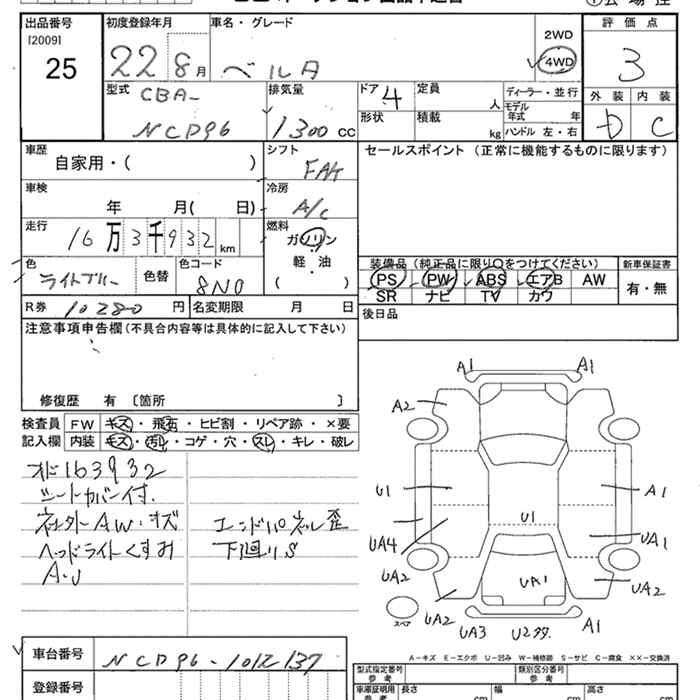 出品番号
[2009]
25
初度登録年月
22 8月
車名・グレード
ベルタ
2WD
4WD
評価点
3
外装 内装
D C
型式
CBA-
NCP96
排気量
1300 cc
ドア 4
形状
定員
人
積載
kg
ディーラー・並行
モデル年式 年
ハンドル 左・右
車歴
自家用・( )
シフト
FAt
セールスポイント (正常に機能するものに限ります)
車検
年 月( 日)
冷房
A/C
走行
16万3千932km
燃料
ガソリン
軽・油
( )
色
ライトブルー
色替
色コード
8N0
装備品 (純正品に限り○をつけてください)
PS PW ABS エアB AW
SR ナビ TV カワ
新車保証書
有・無
R券 10280 円
名変期限 月 日
後日品
注意事項申告欄 (不具合内容等は具体的に記入して下さい)
修復歴 有 〔箇所 〕
検査員 FW キズ・飛石・ヒビ割・リペア跡・×要
記入欄 内装 キズ・汚レ・コゲ・穴・スレ・キレ・破レ
163932
シートカバー付.
社外AW・キズ
ヘッドライトくすみ
A・U
エンドパネル歪
下廻りS
A1 A1
A2
U1 A1
U1
UA4 UA1
UA2 UA1 UA2
UA2
スペア
UA3 U2 A1
A-キズ E-エクボ U-凹み W-補修跡 S-サビ C-腐食 ××-交換済
車台番号 NCP96-1012137
登録番号
型式指定番号
参考
類別区分番号
参考
車庫証明用
参考
長さ cm
幅 cm
高さ cm